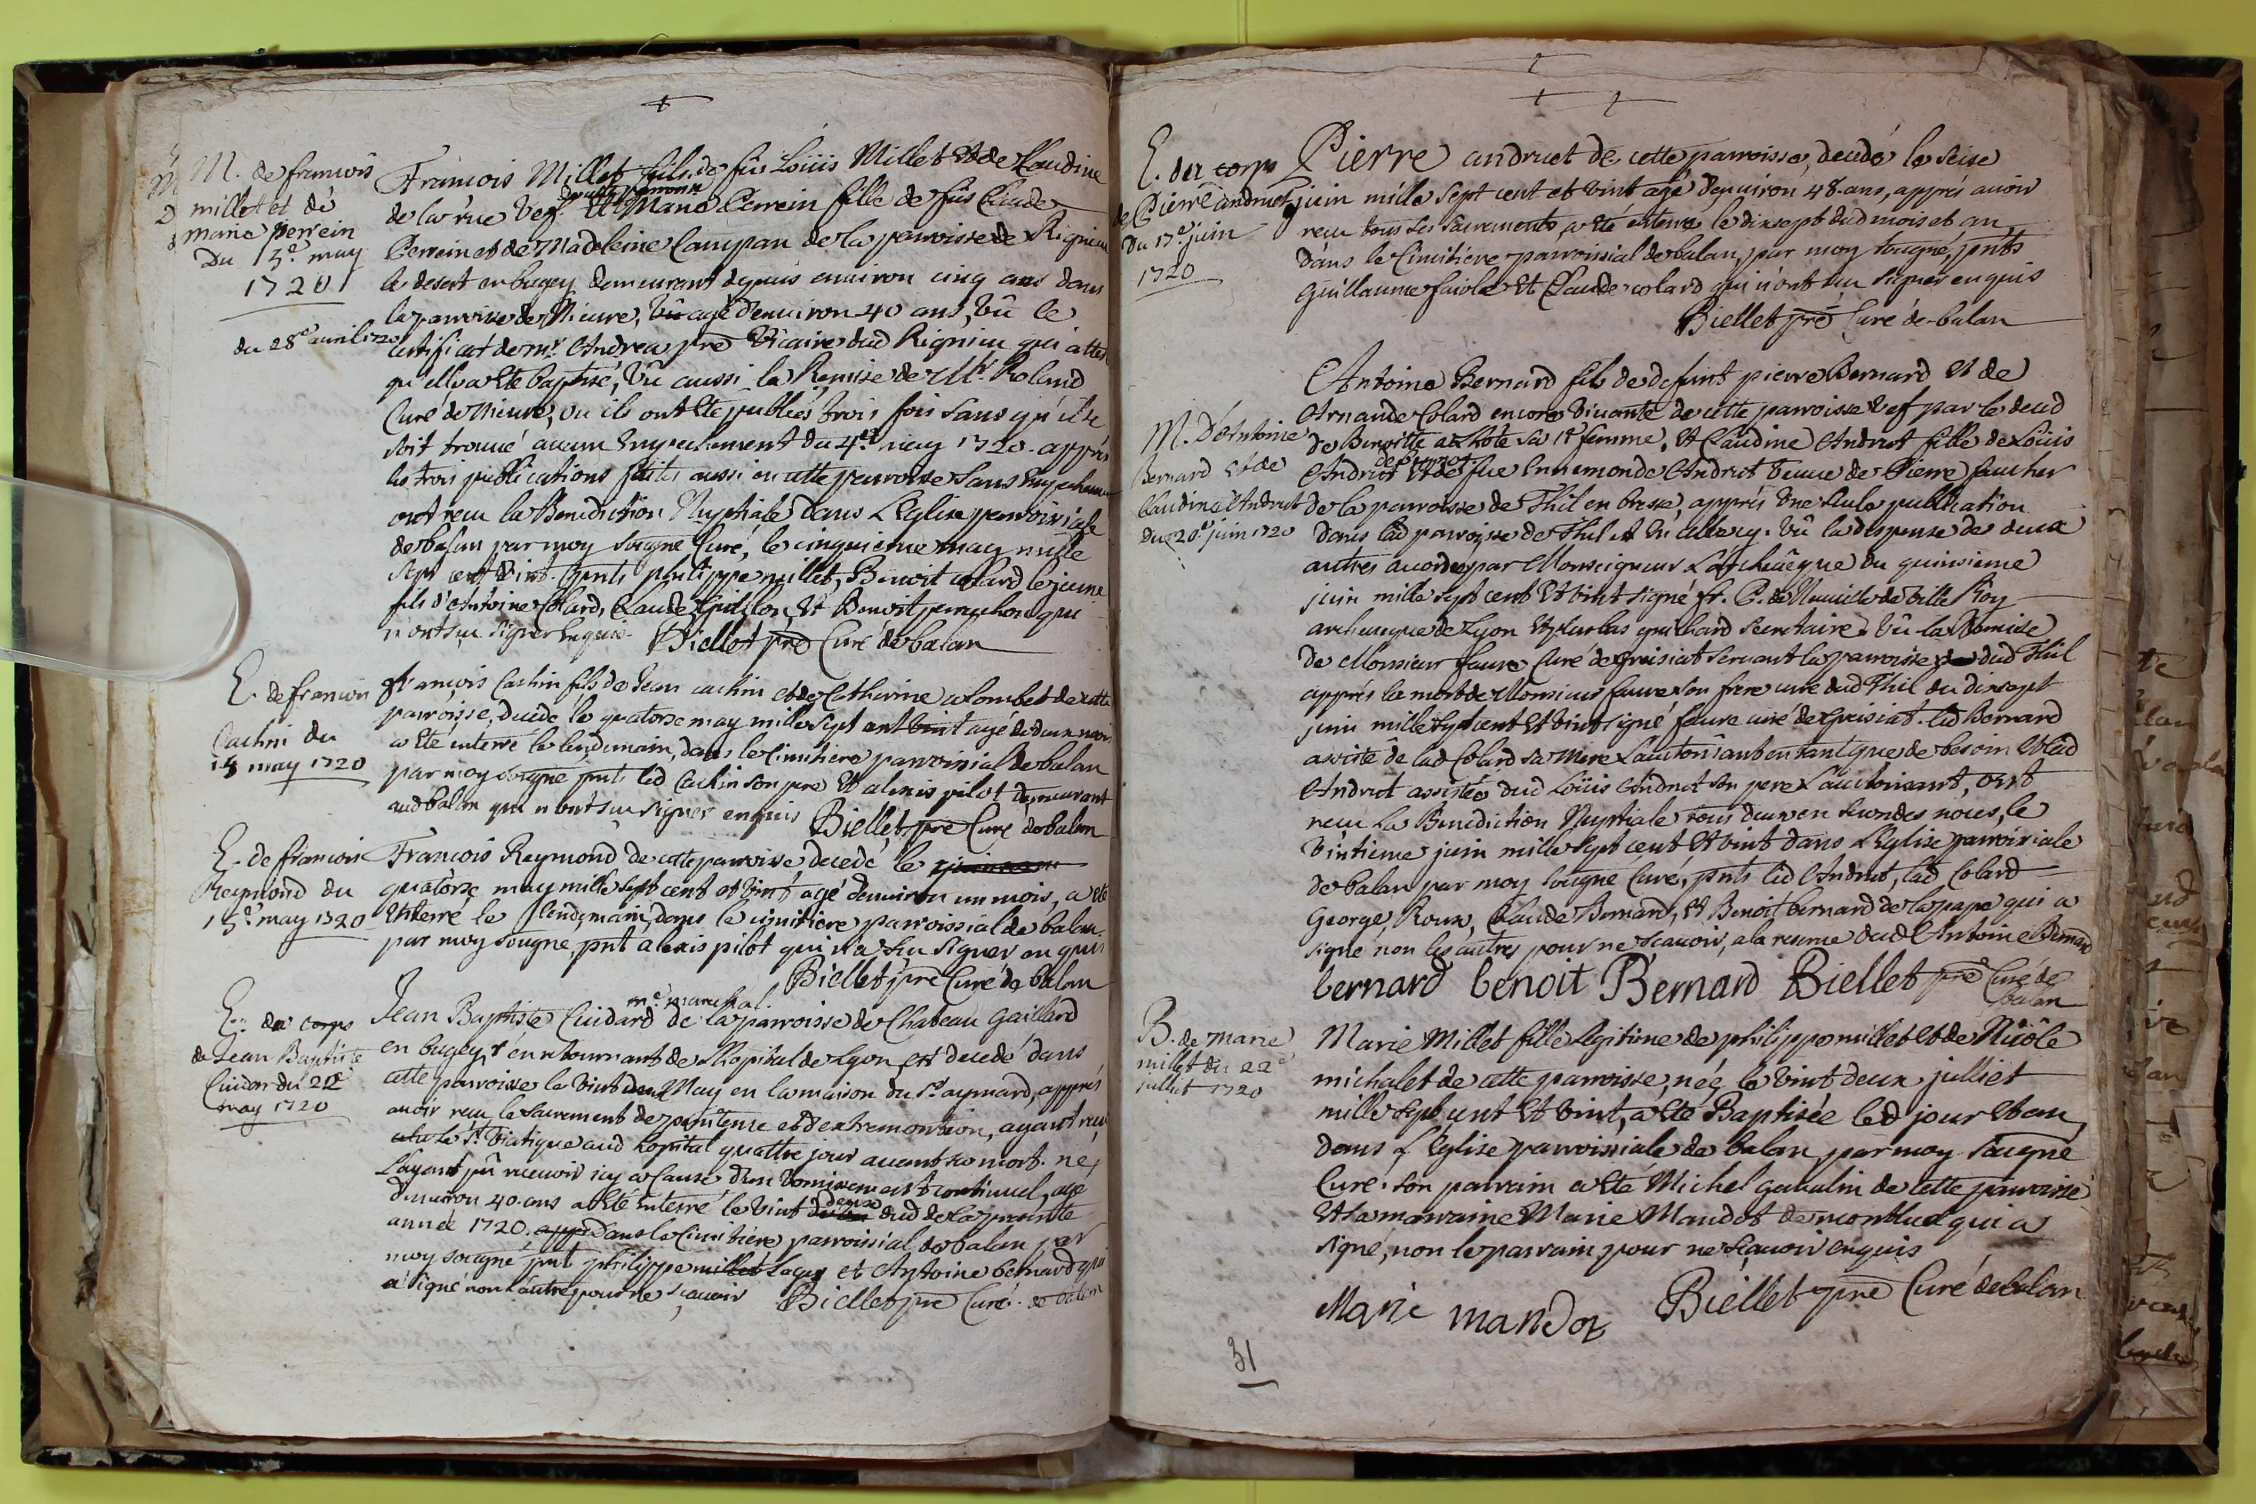 M. de francois
millet et de
marie perrein
Du 5e. may
1720
Francois Millet fils de fûs Loüis Millet et de Claudine
de la rue vef. de cette parroisse Et Marie Perrein fille de fûs Claude
Perrein et de Madeleine Campan de la parroisse de Rignieu
le desert en bugey demeurant depuis environ cinq ans dans
la parroisse de Nieure, agé denuiron 40 ans, vû le
du 28e avril 1720
certificat de mr. Andrea pre vicaire dud Rignieu qui atteste
qu'elle a ete baptisé, vû aussi la Remise de Mr. Roland
Curé de Nieure, ou ils ont ete publiés trois fois sans qu'il se
soit trouué aucun empechement du 4e. may 1720. apprés
les trois publications faites aussi en cette parroisse sans empechement
ont recu la Benediction Nuptiale dans L'Eglise parroissiale
de balan par moy sougné Curé, le cinquieme may mille
sept cent vint. pnts philippe millet, Benoit colard le jeune
fils d'Antoine Colard, Claude Guillon, et Benoit perruchon qui
n'ont su signer enquis. Biellet pre Curé de balan
E. de francois
Cachin du
15 may 1720
francois Cachin fils de Jean cachin et de Catherine colombet de cette
parroisse, decedé le quatorse may mille sept cent vint agé de deux mois
a ete interré le lendemain, dans le cimitiere parroissial de balan
par moy sougné pnts led Cachin son pere et alexis pilot demeurant
aud balan qui n'ont su signer enquis Biellet pre Curé de balan
E. de francois
Reymond du
15e may 1720
Francois Reymond de cette parroisse, decedé le
quatorse may mille sept cent et vint agé denuiron un mois, a ete
enterré le lendemain, dans le cimitiere parroissial de balan
par moy sougné, pnt alexis pilot qui n'a su signer enquis
Biellet pre Curé de balan
E. du corps
de Jean Baptiste
Cuidar du 22e
may 1720
Jean Baptiste Cuidard me marechal de la parroisse de Chateau gaillard
en bugey en retournant de Lhopital de Lyon est decedé dans
cette parroisse le vint May en la maison du Sr. aymard, apprés
auoir recu le sacrement de penitence et d'extremontion, ayant recu
le St. viatique aud hopital quattre jour auant sa mort. ne
l'ayant pû receuoir icy a cause d'un vomissement continuel, agé
denuiron 40 ans a eté enterré le vint deuxe dud de la presente
année 1720. dans le cimitiere parroissial de balan par
moy sougné pnt philippe et Antoine bernard qui
a signé non l'autre pour ne scauoir Biellet pre Curé de balan
E. du corps
de Pierre andruet
Du 17e juin
1720
Pierre andruet de cette parroisse, decedé le seise
juin mille sept cent et vint agé denuiron 48 ans, apprés auoir
recu tous ses sacrements, a ete enterré le dixsept dud mois et an
dans le Cimitiere parroissial de balan, par moy sougné, pnts
Guillaume faiole et Claude colard qui n'ont su signer enquis
Biellet pre Curé de balan
M. D'Antoine
Bernard et de
Claudine Andrut
Du 20e. juin 1720
Antoine Bernard fils de defunt pierre Bernard et de
Arnaude Colard encore viuante de cette parroisse vef par le decd
de Benoitte a Lhote sa 1e. femme, et Claudine Andrut fille de Loüis
Andrut et de fue Ennemonde Andrut veuue de Pierre faucher
de la parroisse de Thil en bresse, apprés une seule publication
dans lad parroisse de Thil et en celle cy. vû la dispense de deux
autres accordés par Monseigneur L'archeuêque du quinsieme
juin mille sept cent et vint signé fr. P. de Neuuille de Ville Roy
archeueque de Lyon et plus bas guichard secretaire. vû la Remise
de Monsieur faure Curé de greisiat seruant la parroisse dud Thil
apprés la mort de Monsieur faure son frere curé dud Thil du dixsept
juin mille sept cent et vint signé faure curé de greisiat. led Bernard
assisté de lad Colard sa mere L'autorisant en tant que de besoin et lad
Andrut assistée dud Loüis Andrut son pere L'autorisant, ont
recu La Benediction Nuptiale tous deux en secondes noces, le
vintieme juin mille sept cent et vint dans L'Eglise parroissiale
de balan par moy sougné Curé, pnts led Andrut, lad Colard
George Roux, Claude Bernard, et Benoit bernard de la pape qui a
signé non les autres pour ne scauoir, a la reserue dud Antoine Bernard
bernard benoit Bernard Biellet pre Curé de
balan
B. de marie
millet du 22e
juillet 1720
Marie Millet fille Legitime de philippe millet et de Nicôle
michalet de cette parroisse, née le vint deux julliet
mille sept cent et vint, a eté Baptisée led jour et an
dans L'Eglise parroissiale de balan par moy sougné
Curé. son parrain a eté Michel gaualin de cette parroisse
et la marraine Marie Mandot de montluel qui a
signé, non le parrain pour ne scauoir enquis
Marie mandot Biellet pre Curé de balan
31